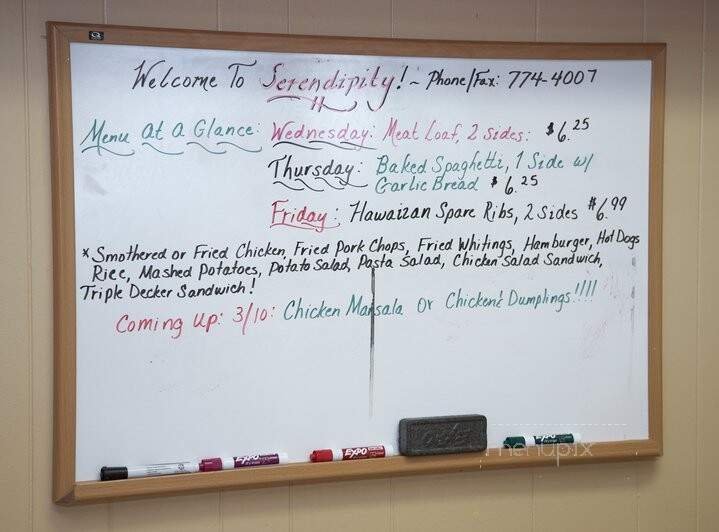 Welcome To Serendipity! ~ Phone/Fax: 774-4007
Menu At A Glance: Wednesday: Meat Loaf, 2 sides: $6.25
Thursday: Baked Spaghetti, 1 Side w/
Garlic Bread $6.25
Friday: Hawaiian Spare Ribs, 2 Sides $6.99
*Smothered or Fried Chicken, Fried Pork Chops, Fried Whitings, Hamburger, Hot Dogs
Rice, Mashed Potatoes, Potato Salad, Pasta Salad, Chicken Salad Sandwich,
Triple Decker Sandwich!
Coming Up: 3/10: Chicken Marsala Or Chicken & Dumplings!!!!
EXPO
EXPO
EXPO
menupix